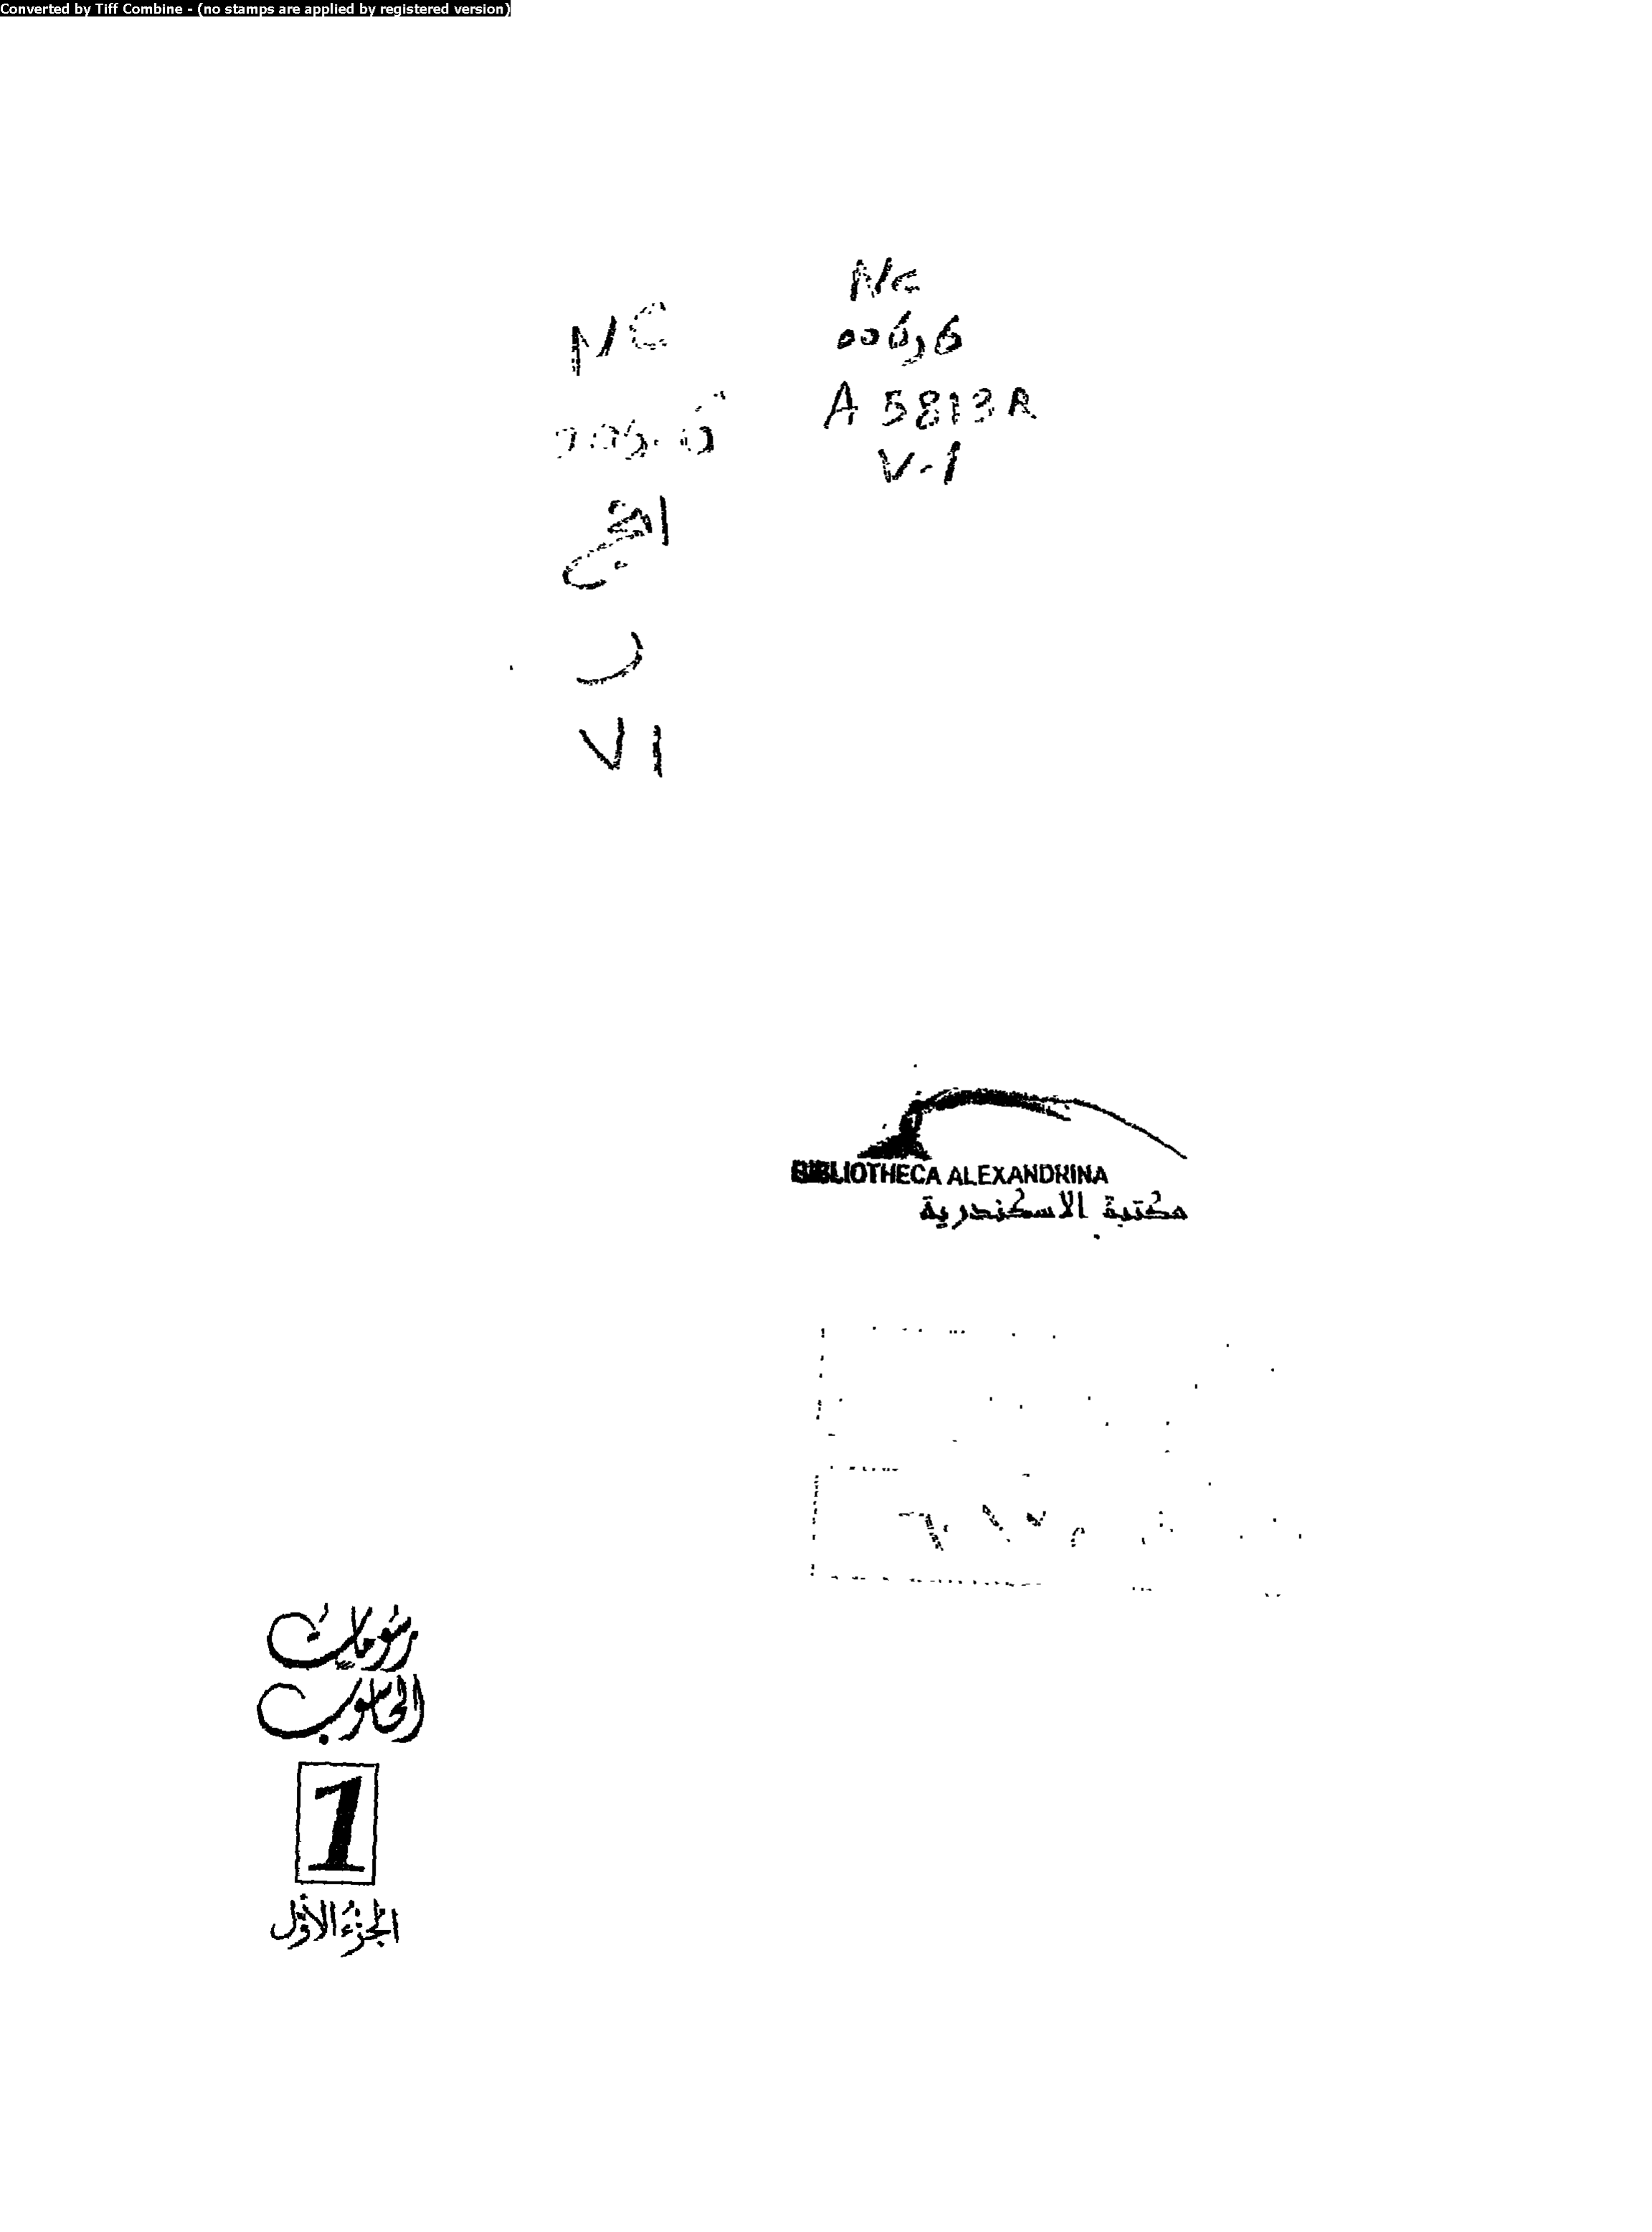 Converted by Tiff Combine - (no stamps are applied by registered version)
NC
A 5813 R
V-1
NC
ر
V1
BIBLIOTHECA ALEXANDRINA
مكتبة الاسكندرية
رسوميات
الحاسوب
1
الجزء الأول